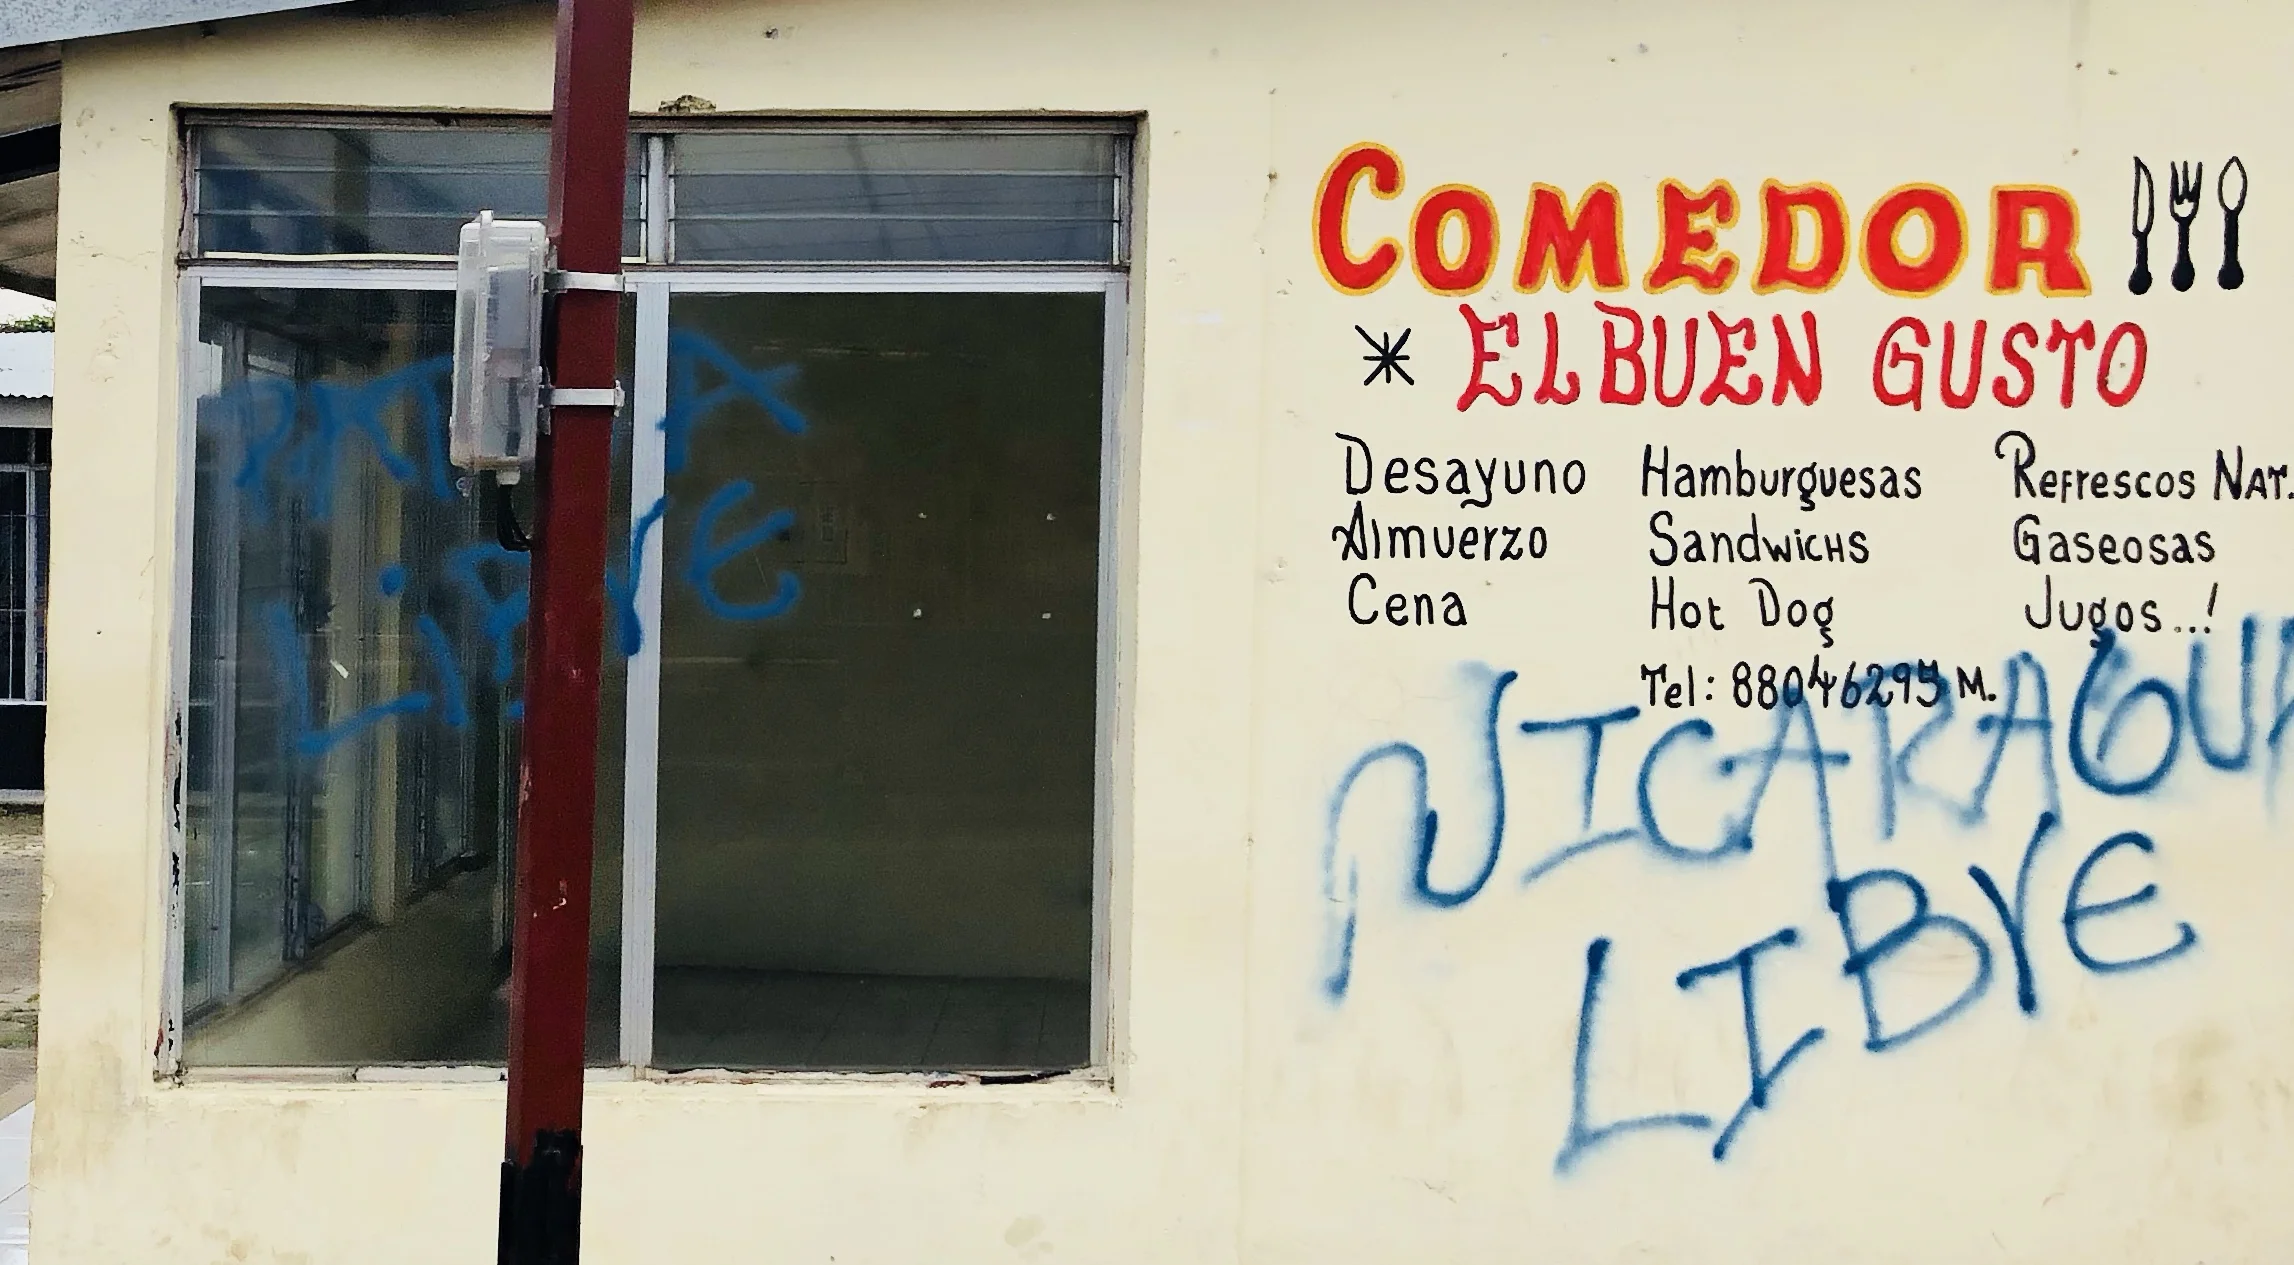 COMEDOR
EL BUEN GUSTO
Desayuno Hamburguesas Refrescos NAT.
Almuerzo Sandwichs Gaseosas
Cena Hot Dog Jugos...!
Tel: 88046295 M.
NICARAGUA
LIBRE
PATRIA
LIBRE